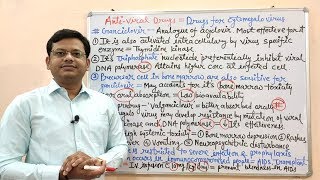 Anti-Viral Drugs = Drugs for Cytomegalo virus
# Ganciclovir - Analogue of acyclovir. Most effective for it
① It is also activated intracellularly by virus specific
enzyme = Thymidine kinase
② It's Triphosphate nucleotide preferentially inhibit viral
DNA polymerase. Attains higher conc at infected cell.
③ Precursor cell in bone marrow are also sensitive for
ganciclovir = May accounts for its bone marrow toxicity
oral absorption = Low bioavailability
prodrug - valganciclovir = better absorbed orally
virus may develop resistance by mutation of viral
kinase and DNA polymerase = efficiency
high systemic toxicity → ① Bone marrow depression ② Rashes
fever ④ vomiting ⑤ Neuropsychiatric disturbance
restricted to severe infection & prophylaxis
occurs in immunocompromised people = AIDS, Transplant
IV infusion 10 mg/kg/day = prevent blindness in AIDS